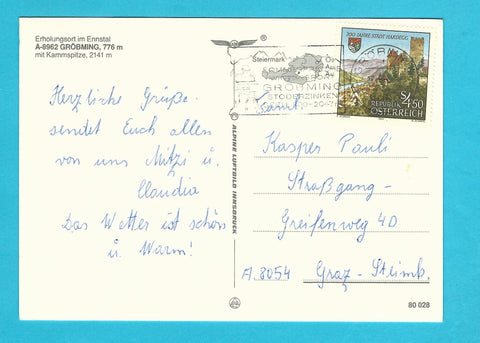 Erholungsort im Ennstal
A-8962 GRÖBMING, 776 m
mit Kammspitze, 2141 m
Herzliche Grüße
sendet Euch allen
von uns Mitzi u.
Claudia
Das Wetter ist schön
u. Warm!
ALPINE LUFTBILD INNSBRUCK
Steiermark
GRÖBMING
STODERZINKEN
700 JAHRE STADT HARDEGG
S 4.50
REPUBLIK
ÖSTERREICH
Kasper Pauli
Straßgang-
Greifenweg 4D
A. 8054 Graz-Steimk.
80 028